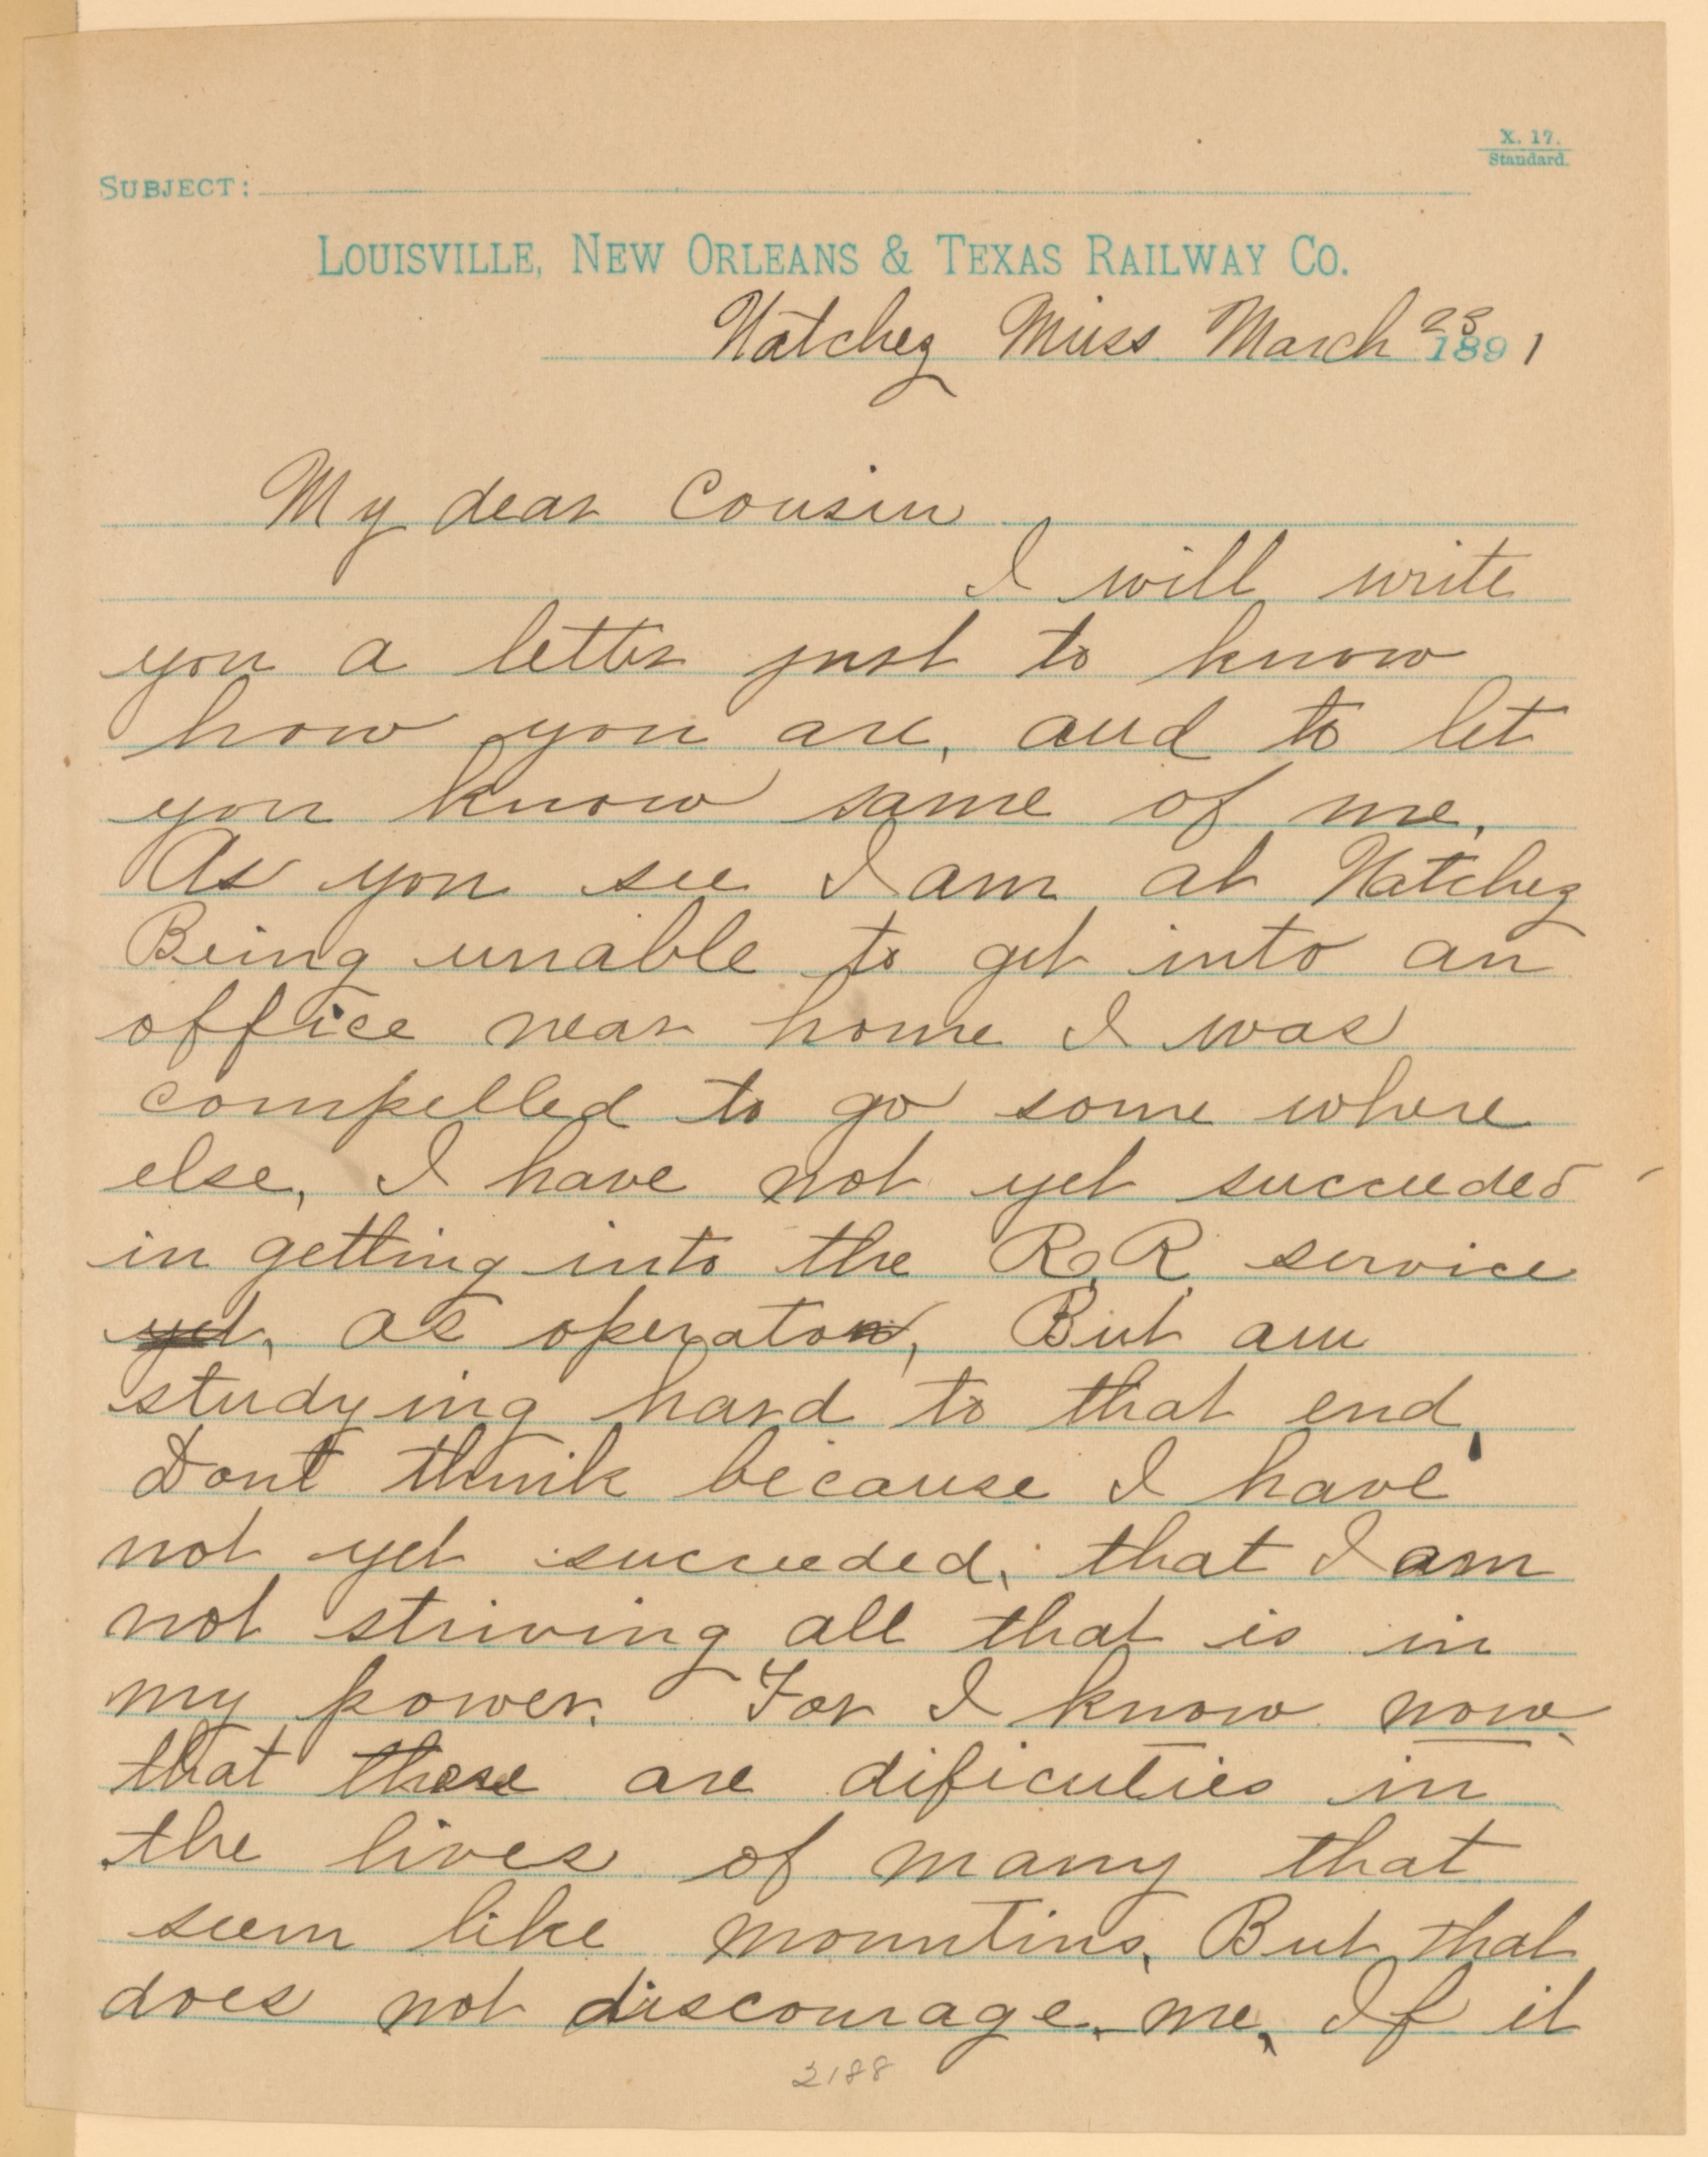 X. 17.
Standard.
SUBJECT:
LOUISVILLE, NEW ORLEANS & TEXAS RAILWAY CO.
Natchez Miss March 23 1891
My dear Cousin
I will write
you a letter just to know
how you are, and to let
you know some of me.
As you see I am at Natchez
Being unable to get into an
office near home I was
compelled to go some where
else, I have not yet succeeded
in getting into the R.R. service
yet, as operator, But am
studying hard to that end,
Dont think because I have
not yet succeeded, that I am
not striving all that is in
my power. For I know now
that there are dificulties in
the lives of many that
seem like mountins, But that
does not discourage me, If it
2188